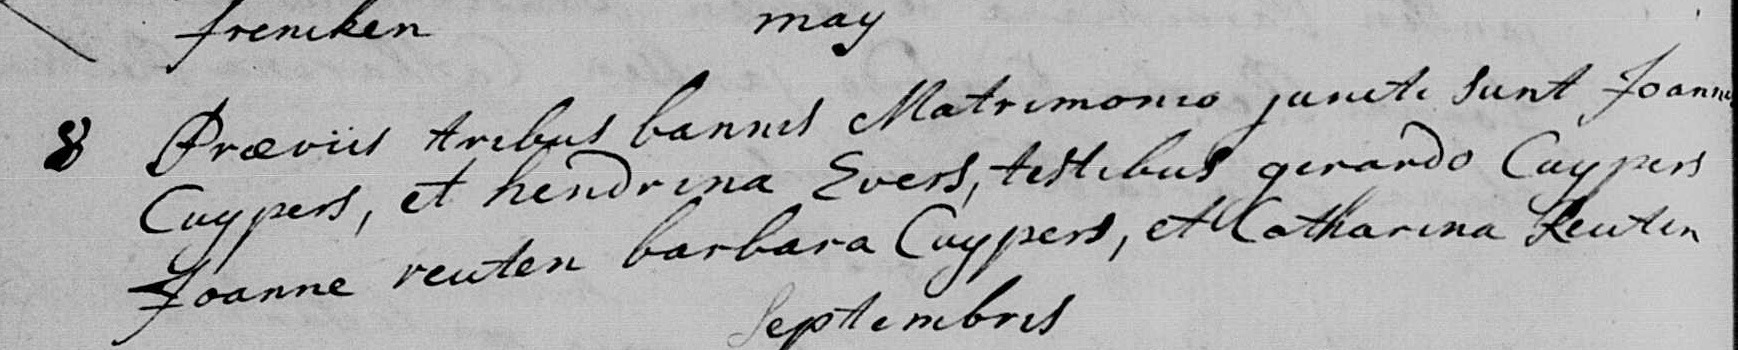 frencken
may
8 Præviis tribus bannis Matrimonio juncti sunt Joannes
Cuypers, et hendrina Evers, testibus gerardo Cuypers
Joanne reuten barbara Cuypers, et Catharina Reuten
Septembris